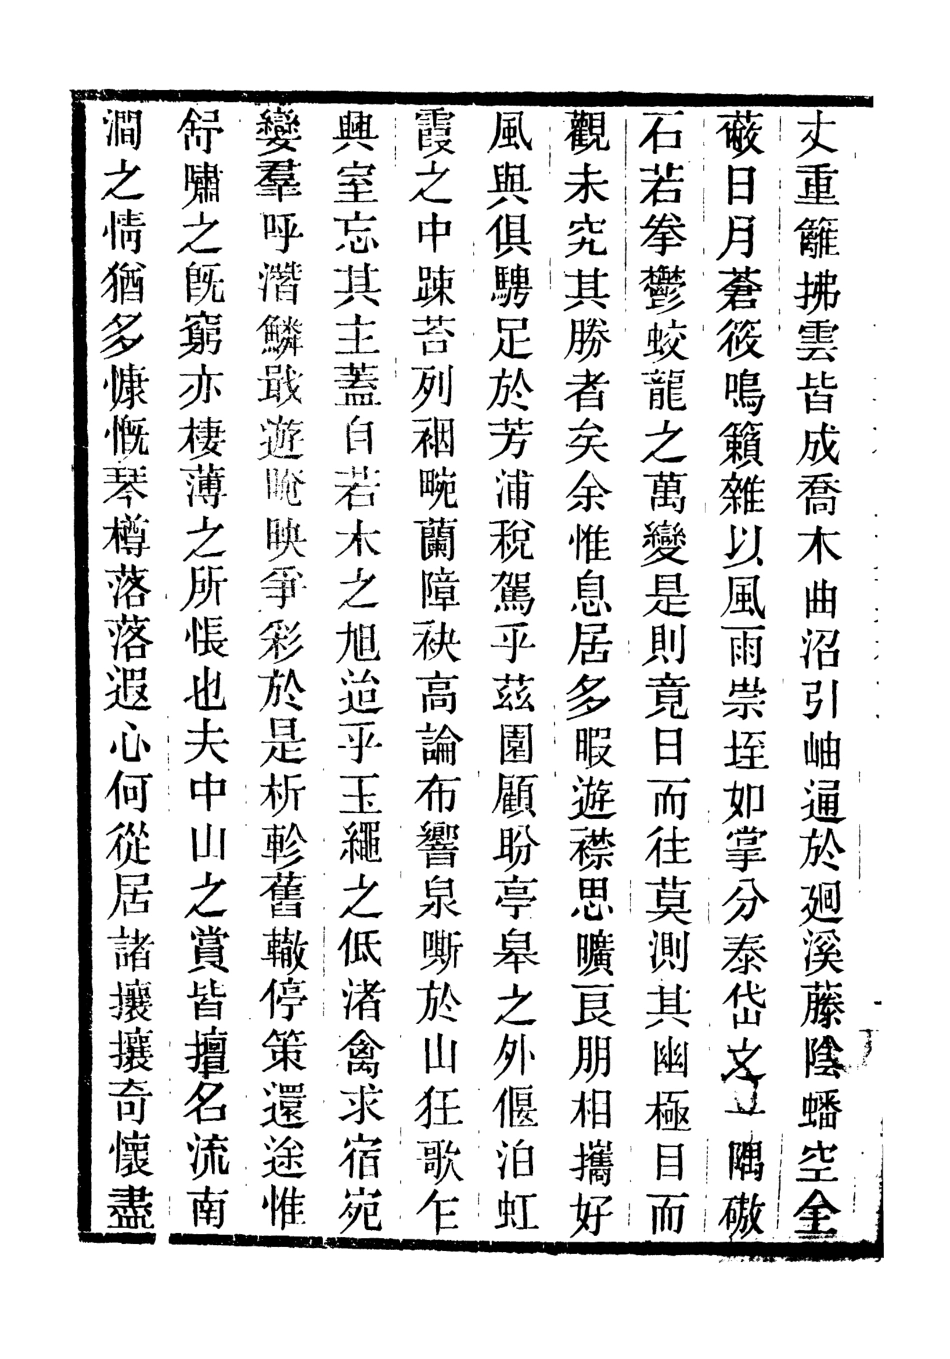 丈重籬拂雲皆成喬木曲沼引岫通於廻溪藤陰蟠空全
蔽日月蒼筱鳴籟雜以風雨崇垤如掌分泰岱之一隅磝
石若拳鬱蛟龍之萬變是則竟日而往莫測其幽極目而
觀未究其勝者矣余惟息居多暇遊襟思曠良朋相攜好
風與俱騁足於芳浦稅駕乎茲園顧盼亭皋之外偃泊虹
霞之中疎苔列裀畹蘭障袂高論布響泉嘶於山狂歌乍
興室忘其主蓋自若木之旭迨乎玉繩之低渚禽求宿宛
孌羣呼潛鱗戢遊晻映爭彩於是析軫舊轍停策還途惟
舒嘯之旣窮亦棲薄之所悵也夫中山之賞皆擅名流南
澗之情猶多慷慨琴樽落落遐心何從居諸攘攘奇懷盡